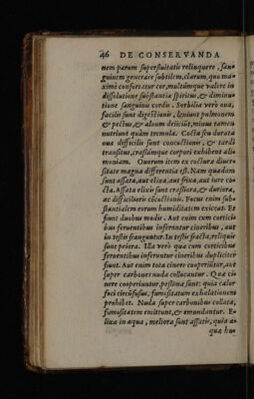 46 DE CONSERVANDA
nem parum superfluitatis relinquere, san-
guinem generare subtilem, clarum, qui ma-
ximè confortatur cor, multumque valere in
dissolutione substantiæ spiritus, & diminu-
tione sanguinis cordis. Sorbilia verò oua,
facilis sunt digestionis, leniunt pulmonem
& pectus, & aluum deijciũt, minus tamen
nutriunt quàm tremula. Cocta seu durata
oua difficilis sunt concoctionis, & tardi
transitus, crassumque corpori exhibent ali-
moniam. Ouorum item ex coctura diuer-
sitate magna differentia est. Nam quædam
sunt assata, aut elixa, aut frixa, aut iure co-
cta. Assata elixis sunt crassiora, & duriora,
ac difficilioris cõcoctionis. Focus enim sub-
stantialem eorum humiditatem exiccat. Et
fiunt duobus modis. Aut enim cum cortici-
bus feruentibus inferuntur cineribus, aut
in testis franguntur. In testis fracta, reliquis
sunt peiora. Illa verò quæ cum corticibus
feruentibus inferuntur cineribus dupliciter
fiunt. Aut enim tota cinere cooperiũtur, aut
super carbones nuda collocantur. Quæ ci-
nere cooperiuntur, pessima sunt: quia calor
foci circũfusus, fumositatum exhalationem
prohibet. Nuda super carbonibus collata,
fumositatem emittunt, & emundantur. E-
lixa in aqua, meliora sunt assatis, quia a-
quæ hu-